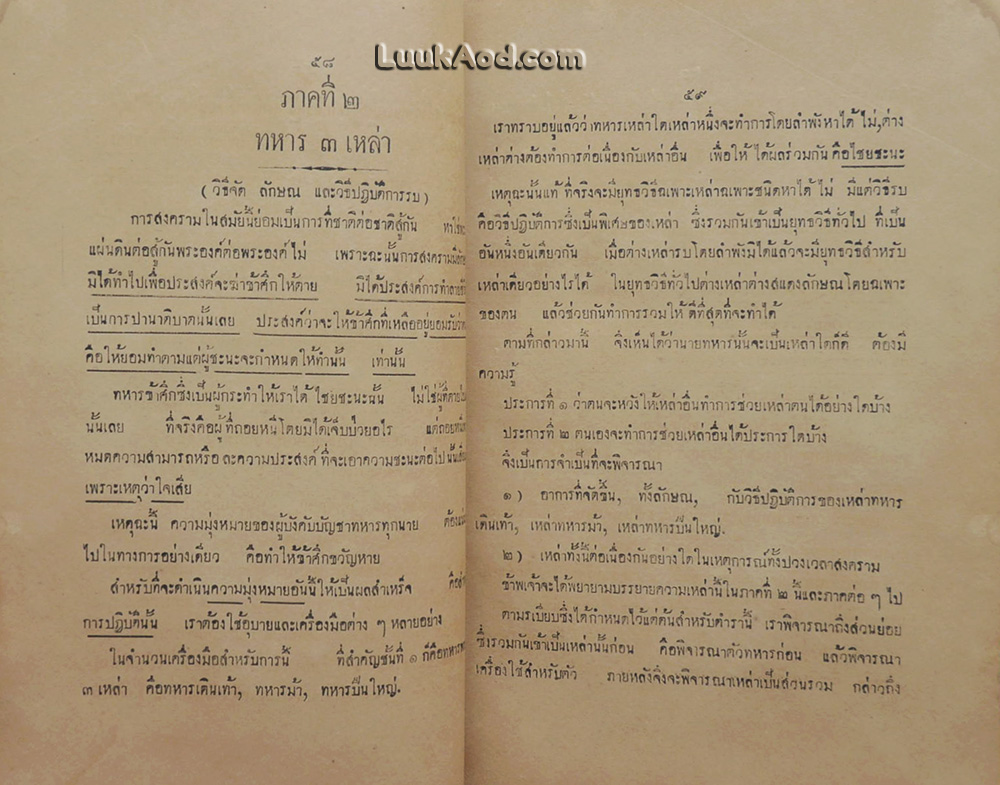 LuukAod.com
๕๘
ภาคที่ ๒
ทหาร ๓ เหล่า
(วิธีจัด ลักษณ และวิธีปฏิบัติการรบ)
การสงครามในสมัยนี้ย่อมเป็นการที่ชาติต่อชาติสู้กัน
แผ่นดินต่อสู้กันพระองค์ต่อพระองค์ไม่ เพราะฉะนั้นการสงคราม
มิได้ทำไปเพื่อประสงค์จะฆ่าข้าศึกให้ตาย มิได้ประสงค์การทำลาย
เป็นการปานาติบาตนั้นเลย ประสงค์ว่าจะให้ข้าศึกที่เหลืออยู่ยอมรับ
คือให้ยอมทำตามแต่ผู้ชะนะจะกำหนดให้ทำนั้น เท่านั้น
ทหารข้าศึกซึ่งเป็นผู้กระทำให้เราได้ไชยชะนะนั้น ไม่ใช่ผู้ที่ตาย
นั้นเลย ที่จริงคือผู้ที่ถอยหนีโดยมิได้เจ็บป่วยอไร
หมดความสามารถหรือละความประสงค์ที่จะเอาความชะนะต่อไป
เพราะเหตุว่าใจเสีย
เหตุฉะนี้ ความมุ่งหมายของผู้บังคับบัญชาทหารทุกนาย
ไปในทางการอย่างเดียว คือทำให้ข้าศึกขวัญหาย
สำหรับที่จะดำเนินความมุ่งหมายอันนี้ให้เป็นผลสำเหร็จ
การปฏิบัตินั้น เราต้องใช้อุบายและเครื่องมือต่าง ๆ หลายอย่าง
ในจำนวนเครื่องมือสำหรับการนี้ ที่สำคัญชั้นที่ ๑ ก็คือทหาร
๓ เหล่า คือทหารเดินเท้า, ทหารม้า, ทหารปืนใหญ่.
๕๙
เราทราบอยู่แล้วว่าทหารเหล่าใดเหล่าหนึ่งจะทำการโดยลำพังหาได้ไม่, ต่าง
เหล่าต่างต้องทำการต่อเนื่องกับเหล่าอื่น เพื่อให้ได้ผลร่วมกัน คือไชยชะนะ
เหตุฉะนั้นแท้ที่จริงจะมียุทธวิธีฉเพาะเหล่าฉเพาะชนิดหาได้ไม่ มีแต่วิธีรบ
คือวิธีปฏิบัติการซึ่งเป็นพิเศษของเหล่า ซึ่งรวมกันเข้าเป็นยุทธวิธีทั่วไป ที่เป็น
อันหนึ่งอันเดียวกัน เมื่อต่างเหล่ารบโดยลำพังมิได้แล้วจะมียุทธวิธีสำหรับ
เหล่าเดียวอย่างไรได้ ในยุทธวิธีทั่วไปต่างเหล่าต่างสแดงลักษณโดยฉเพาะ
ของตน แล้วช่วยกันทำการรวมให้ดีที่สุดที่จะทำได้
ตามที่กล่าวมานี้ จึ่งเห็นได้ว่านายทหารนั้นจะเป็นเหล่าใดก็ดี ต้องมี
ความรู้
ประการที่ ๑ ว่าตนจะหวังให้เหล่าอื่นทำการช่วยเหล่าตนได้อย่างใดบ้าง
ประการที่ ๒ ตนเองจะทำการช่วยเหล่าอื่นได้ประการใดบ้าง
จึ่งเป็นการจำเป็นที่จะพิจารณา
๑) อาการที่จัดขึ้น, ทั้งลักษณ, กับวิธีปฏิบัติการของเหล่าทหาร
เดินเท้า, เหล่าทหารม้า, เหล่าทหารปืนใหญ่.
๒) เหล่าทั้งนี้ต่อเนื่องกันอย่างใดในเหตุการณ์ทั้งปวงเวลาสงคราม
ข้าพเจ้าจะได้พยายามบรรยายความเหล่านี้ในภาคที่ ๒ นี้และภาคต่อ ๆ ไป
ตามรเบียบซึ่งได้กำหนดไว้แต่ต้นสำหรับตำรานี้ เราพิจารณาถึงส่วนย่อย
ซึ่งรวมกันเข้าเป็นเหล่านั้นก่อน คือพิจารณาตัวทหารก่อน แล้วพิจารณา
เครื่องใช้สำหรับตัว ภายหลังจึงจะพิจารณาเหล่าเป็นส่วนรวม กล่าวถึง